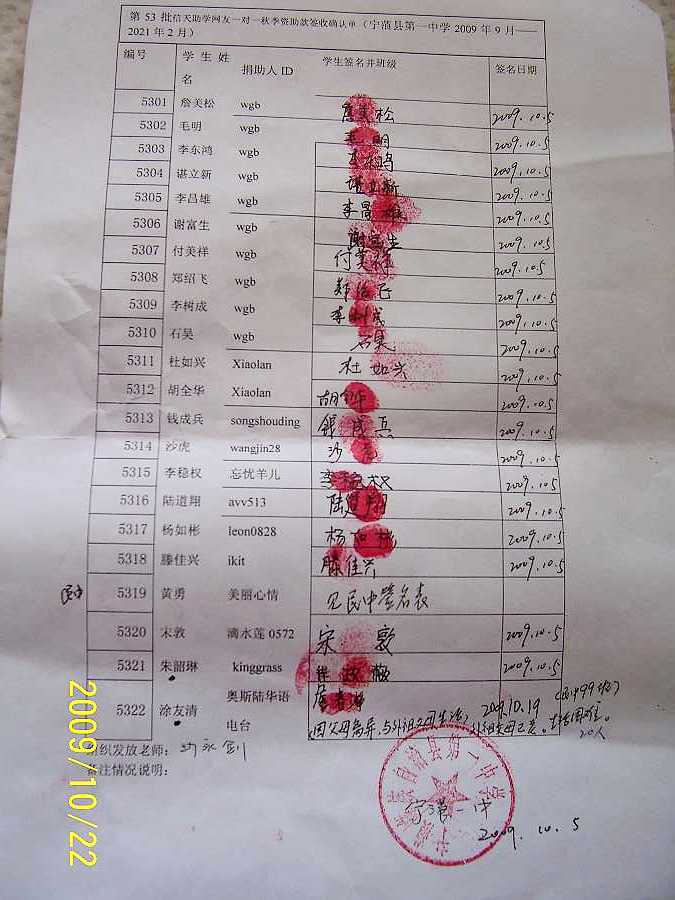 第 53 批信天助学网友一对一秋季资助款签收确认单（宁蒗县第一中学 2009 年 9 月——
2021 年 2 月）
编号 学 生 姓名 捐助人 ID 学生签名并班级 签名日期
5301 詹美松 wgb 詹美松 2009.10.5
5302 毛明 wgb 毛明 2009.10.5
5303 李东鸿 wgb 李东鸿 2009.10.5
5304 谌立新 wgb 谌立新 2009.10.5
5305 李昌雄 wgb 李昌雄 2009.10.5
5306 谢富生 wgb 谢富生 2009.10.5
5307 付美祥 wgb 付美祥 2009.10.5
5308 郑绍飞 wgb 郑绍飞 2009.10.5
5309 李树成 wgb 李树成 2009.10.5
5310 石昊 wgb 石昊 2009.10.5
5311 杜如兴 Xiaolan 杜如兴 2009.10.5
5312 胡全华 Xiaolan 胡全华 2009.10.5
5313 钱成兵 songshouding 2009.10.5
5314 沙虎 wangjin28 沙虎 2009.10.5
5315 李稳权 忘忧羊儿 李稳权 2009.10.5
5316 陆道翔 avv513 陆道翔 2009.10.5
5317 杨如彬 leon0828 杨如彬 2009.10.5
5318 滕佳兴 ikit 滕佳兴 2009.10.5
5319 黄勇 美丽心情 见民中签名表
5320 宋敦 滴水莲 0572 宋敦 2009.10.5
5321 朱韶琳 kinggrass 2009.10.5
5322 涂友清 奥斯陆华语电台 2009.10.19
因父母离异，与外祖父母生活，外祖父母已老。生活困难。
20人
组织发放老师：
备注情况说明：
宁蒗一中
2009.10.5
2009/10/22